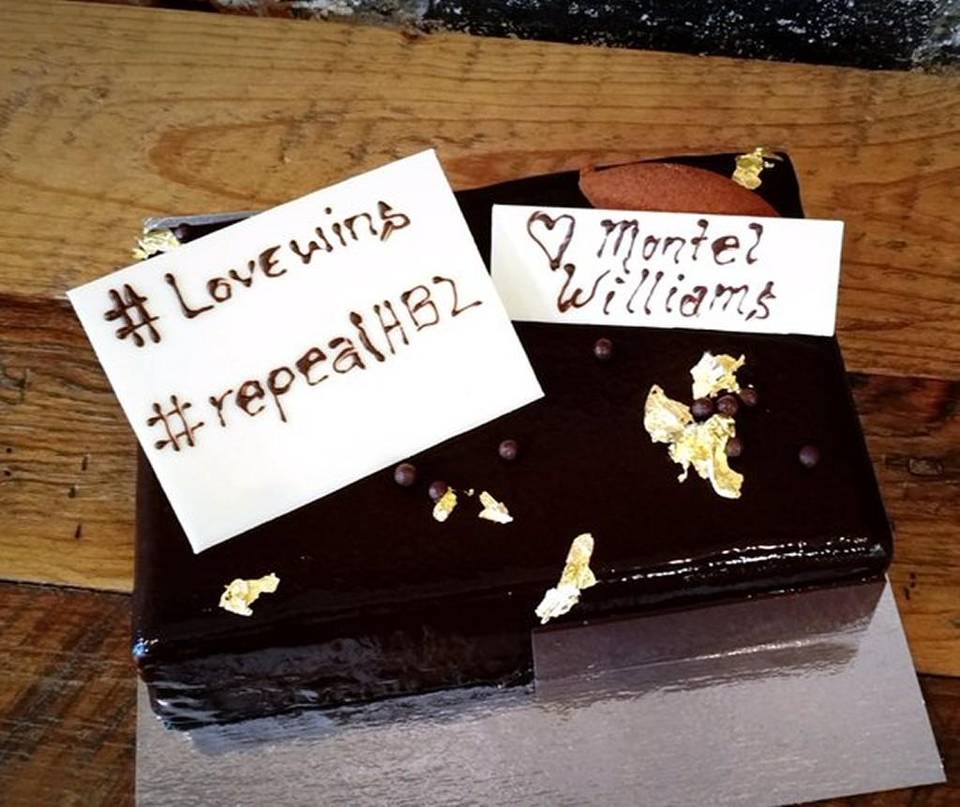 #Lovewins
#repealHB2
♡ Montel
Williams